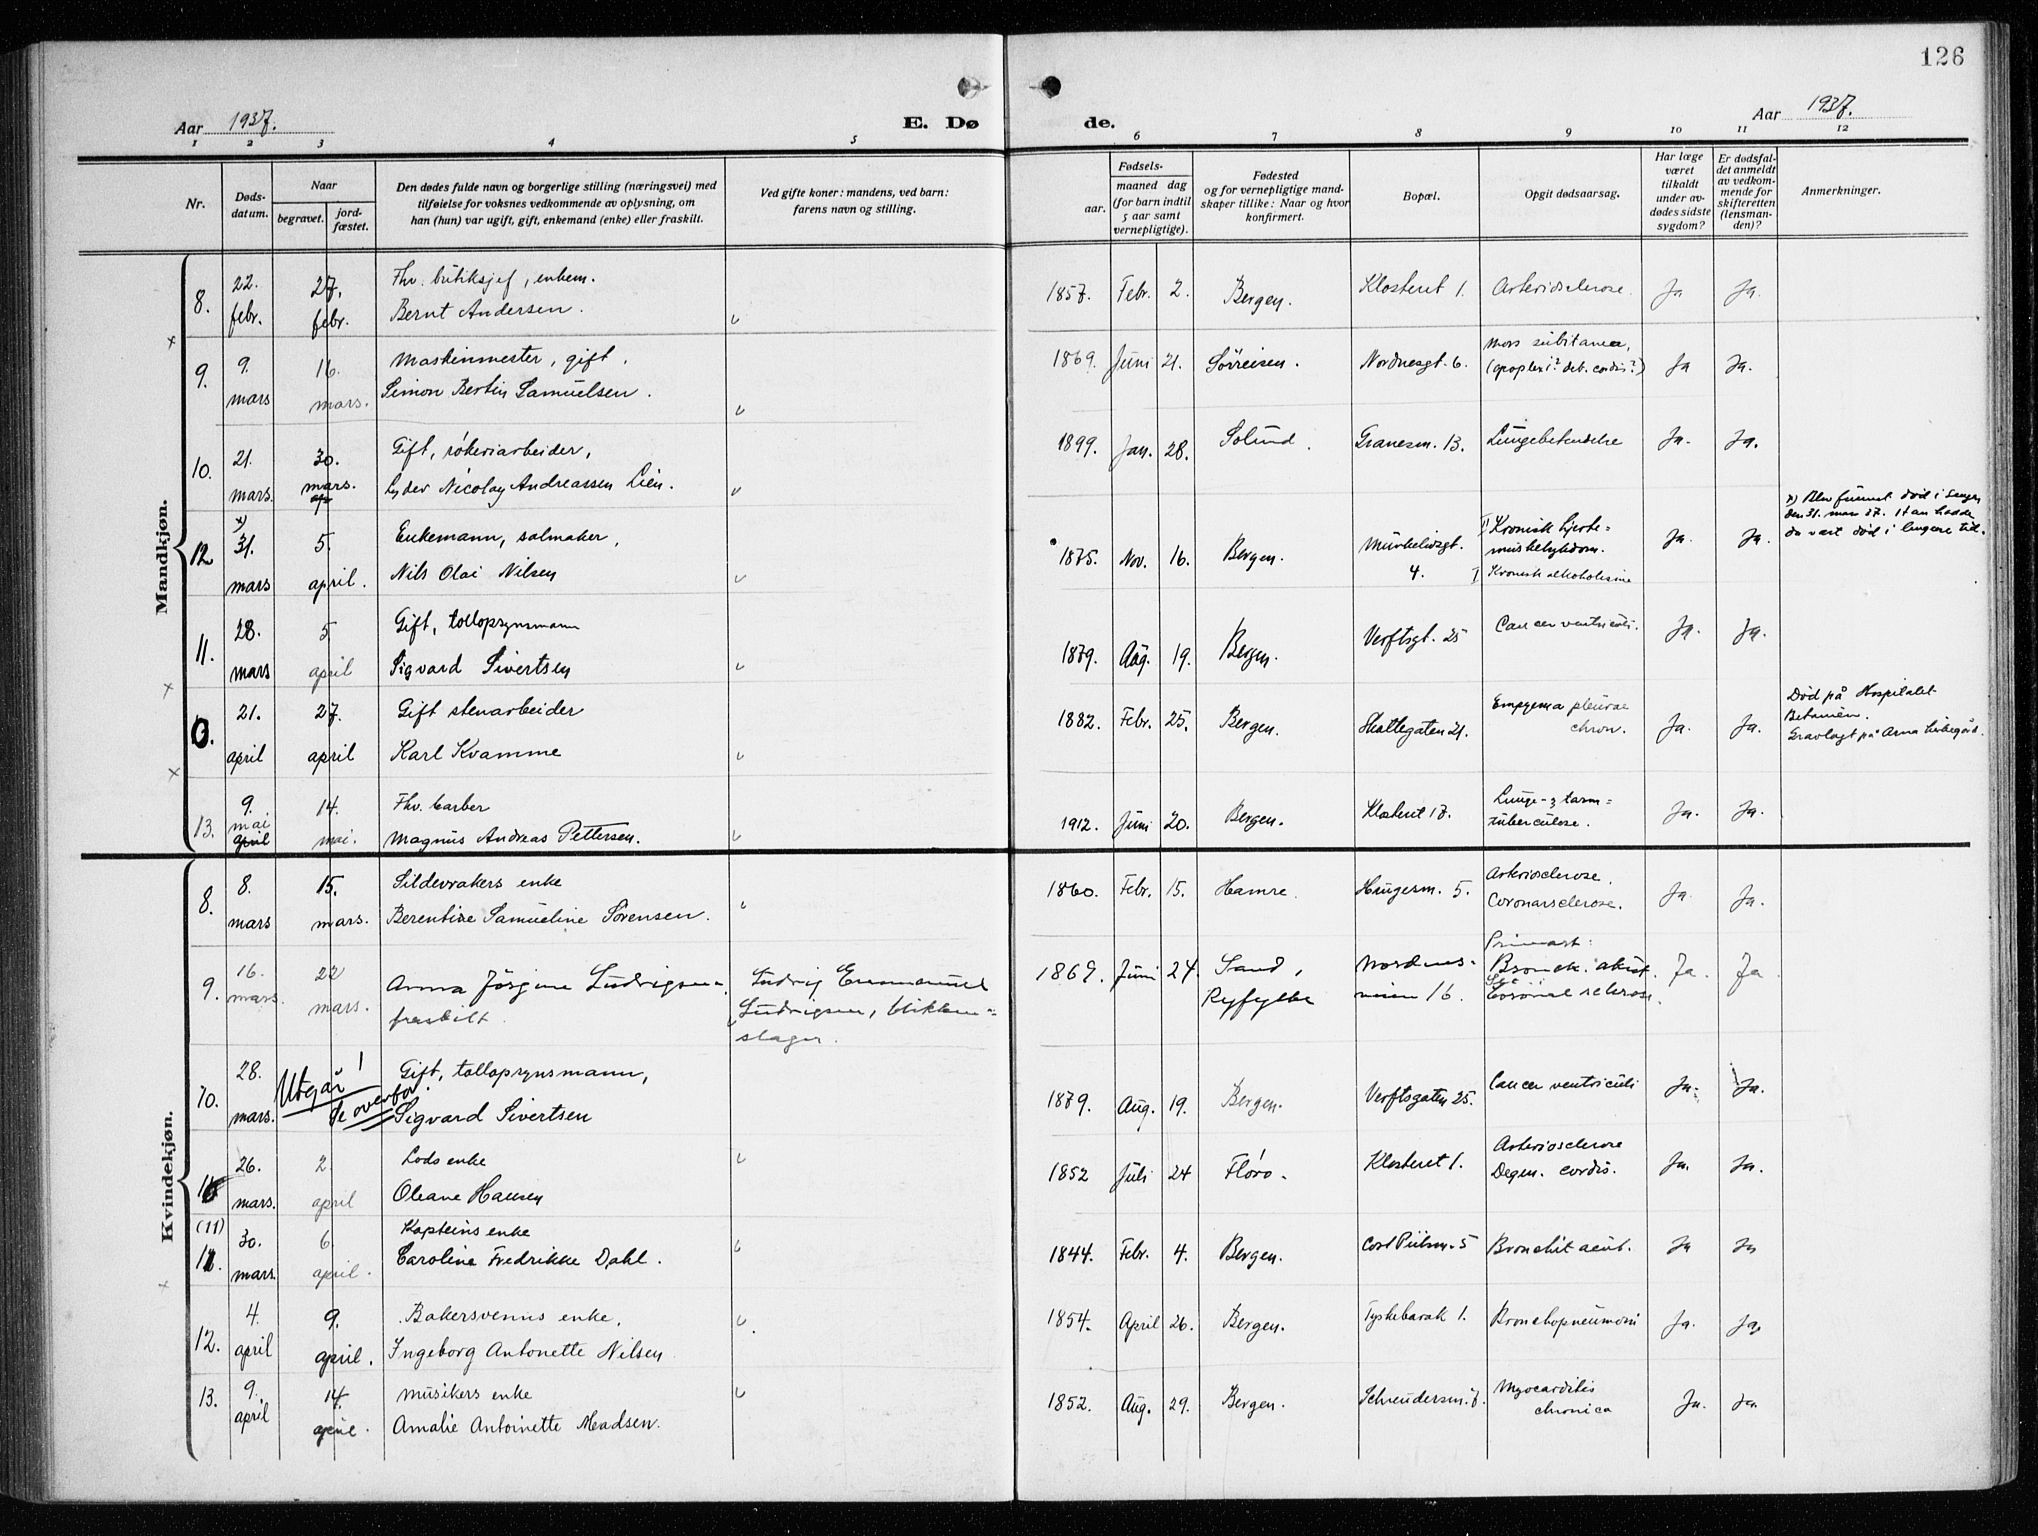 126
Aar 1937.
E. Dø
de.
Aar 1937.
1 2 3 4 5 6 7 8 9 10 11 12
Nr.
Døds-
datum.
Naar
begravet.
jord-
fæstet.
Den dødes fulde navn og borgerlige stilling (næringsvei) med
tilføielse for voksnes vedkommende av oplysning, om
han (hun) var ugift, gift, enkemand (enke) eller fraskilt.
Ved gifte koner: mandens, ved barn:
farens navn og stilling.
Fødsels-
aar.
maaned dag
(for barn indtil
5 aar samt
vernepligtige).
Fødested
og for vernepligtige mand-
skaper tillike: Naar og hvor
konfirmert.
Bopæl.
Opgit dødsaarsag.
Har læge
været
tilkaldt
under av-
dødes sidste
sygdom?
Er dødsfal-
det anmeldt
av vedkom-
mende for
skifteretten
(lensman-
den)?
Anmerkninger.
Mandkjøn.
8. 22. febr. 27. febr. Fhv. butiksjef, enkem.
Bernt Andersen.
1857. Febr. 2. Bergen. Klosteret 1. Arteriosclerose. Ja Ja.
9. 9. mars 16. mars. Maskinmester, gift.
Simon Bertin Samuelsen.
1869. Juni 21. Sørreisen. Nordnesgt. 6. Mors subitanea,
(apoplexi? deb. cordis?) Ja Ja.
10. 21. mars. 30. mars. Gift, røkeriarbeider,
Lyder Nicolay Andreassen Lien.
1899. Jan. 28. Solund. Granesm. 13. Lungebetendelse Ja. Ja.
12 x) 31. mars 5. april. Enkemann, salmaker,
Nils Olai Nilsen
1875. Nov. 16. Bergen. Murhelvzgt.
4. II Kronisk hjerte=
muskelsykdom.
I Kronisk alkoholisme Ja. Ja.
x) Blev funnet død i sengen
den 31. mars 37. Han hadde
da vært død i lengere tid.
11. 28. mars 5 april Gift, tollopsynsmann
Sigvard Sivertsen
1879. Aug. 19. Bergen. Verftsgt. 25 Cancer ventriculi. Ja. Ja.
0. 21. april 27. april Gift stenarbeider
Karl Kvamme
1882. Febr. 25. Bergen. Skottegaten 21. Empyema pleurae
chron. Ja. Ja.
Død på Hospitalet
Betanien.
Gravlagt på Arna kirkegård.
13. 9. mai april 14. mai. Fhv. barber
Magnus Andreas Pettersen.
1912. Juni 20. Bergen. Klosteret 17. Lunge- og tarm=
tuberculose. Ja. Ja.
Kvindekjøn.
8. 8. mars 15. mars. Sildevrakers enke
Berentine Samueline Sørensen.
1860. Febr. 15. Hamre. Haugesm. 5. Arteriosclerose.
Coronarsclerose. Ja. Ja.
9. 16. mars. 22 mars. Anna Jørgine Ludvigsen,
fraskilt.
Ludvig Emmanuel
Ludvigsen, blikken=
slager.
1869. Juni 24. Sand,
Ryfylke
Nordnes-
veien 16. Primært:
Bronch. akut.
Coronal sclerose. Ja. Ja
10. 28. mars. Utgår!
Se overfor. Gift, tollopsynsmann,
Sigvard Sivertsen
1879. Aug. 19. Bergen. Verftsgaten 25. Cancer ventriculi Ja. Ja.
26. mars. 2. april Lods enke
Oleane Hansen
1852 Juli 24 Florø. Klosteret 1. Arteriosclerose
Degen. cordis. Ja. Ja.
(11)
30. mars. 6. april. Kapteins enke
Caroline Fredrikke Dahl.
1844. Febr. 4. Bergen. Cort Piilsm. 5 Bronchit acut. Ja Ja
12. 4. april 9. april. Bakersvenns enke,
Ingeborg Antonette Nilsen
1854. April 26. Bergen. Tyskebarak 1. Bronchopneumoni Ja. Ja.
13. 9. april 14. Musikers enke
Amalie Antoinette Madsen.
1852. Aug. 29. Bergen. Schreudersm. 7. Myocarditis
chronica Ja. Ja